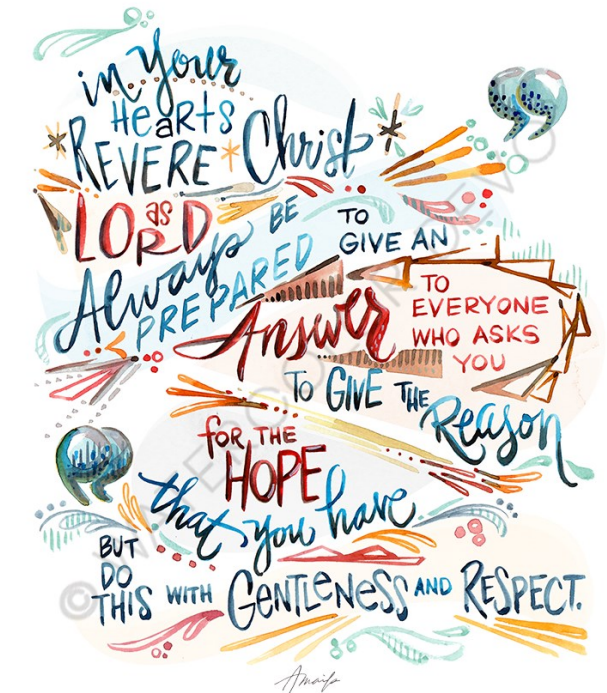 in your
HEARTS
REVERE Christ
as
LORD
Always BE
PREPARED
TO
GIVE AN
Answer
TO
EVERYONE
WHO ASKS
YOU
TO GIVE THE
Reason
for THE
HOPE
that you have
BUT
DO
THIS WITH GENTLENESS AND RESPECT.